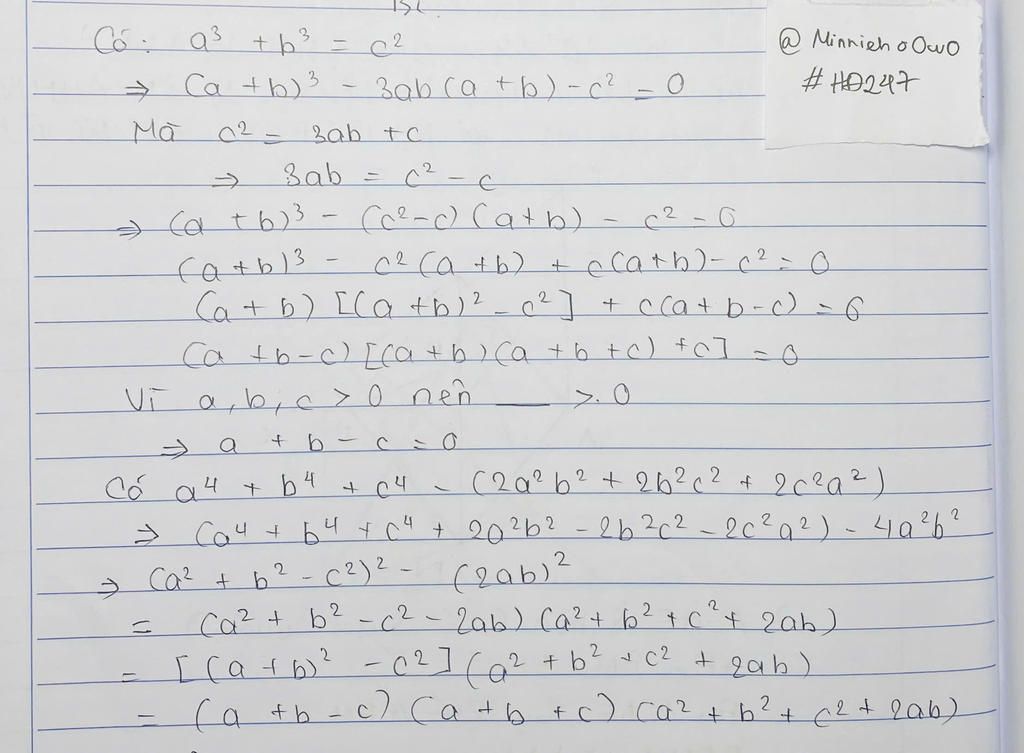 Có: a³ + b³ = c²
@ Minnieh oOwO
#HĐ247
⇒ (a + b)³ - 3ab(a + b) - c² = 0
Mà c² = 3ab + c
⇒ 3ab = c² - c
⇒ (a + b)³ - (c² - c)(a + b) - c² = 0
(a + b)³ - c²(a + b) + c(a + b) - c² = 0
(a + b)[(a + b)² - c²] + c(a + b - c) = 0
(a + b - c)[(a + b)(a + b + c) + c] = 0
Vì a, b, c > 0 nên ___ > 0
⇒ a + b - c = 0
Có a⁴ + b⁴ + c⁴ - (2a²b² + 2b²c² + 2c²a²)
⇒ (a⁴ + b⁴ + c⁴ + 2a²b² - 2b²c² - 2c²a²) - 4a²b²
⇒ (a² + b² - c²)² - (2ab)²
= (a² + b² - c² - 2ab)(a² + b² + c² + 2ab)
= [(a + b)² - c²](a² + b² + c² + 2ab)
= (a + b - c)(a + b + c)(a² + b² + c² + 2ab)